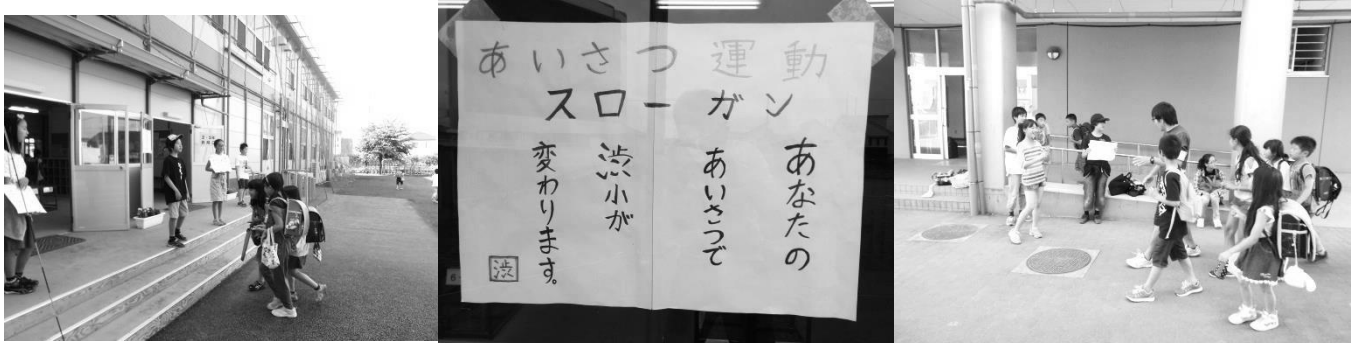 あいさつ運動
スローガン
あなたの
あいさつで
渋小が
変わります。
渋